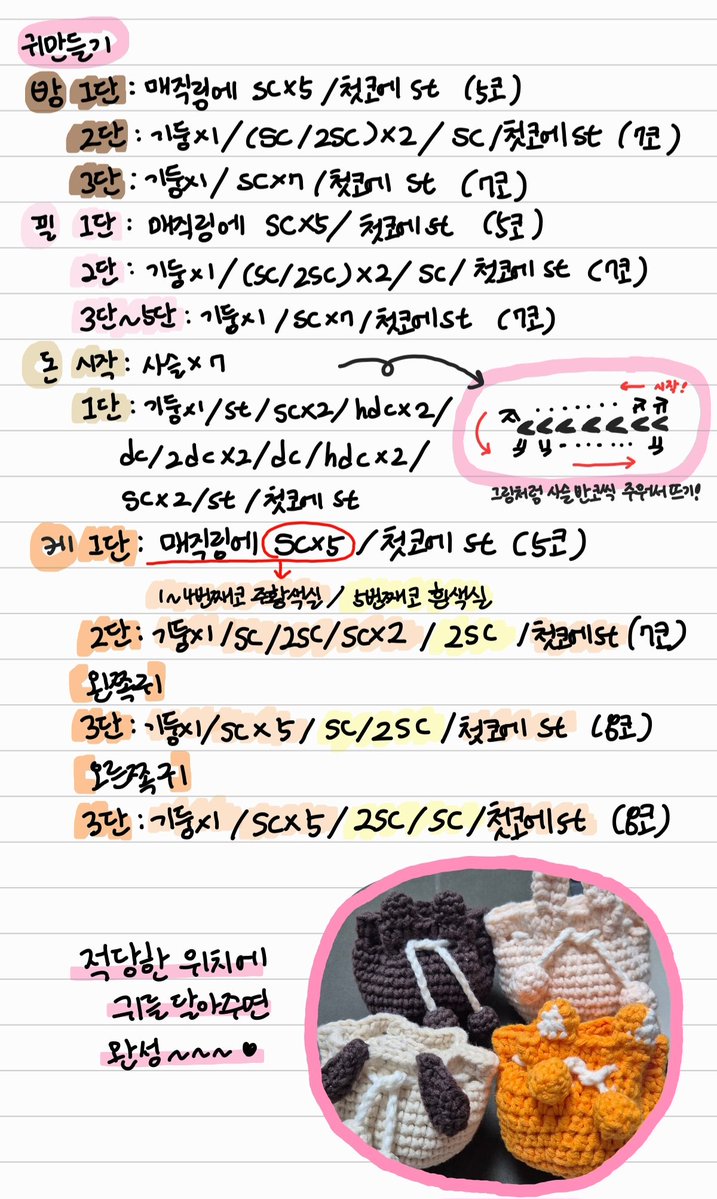 귀만들기
밤 1단 : 매직링에 SC×5 / 첫코에 st (5코)
2단 : 기둥×1 / (SC / 2SC)×2 / SC / 첫코에 st (7코)
3단 : 기둥×1 / SC×7 / 첫코에 st (7코)
필 1단 : 매직링에 SC×5 / 첫코에 st (5코)
2단 : 기둥×1 / (SC / 2SC)×2 / SC / 첫코에 st (7코)
3단~5단 : 기둥×1 / SC×7 / 첫코에 st (7코)
돈 시작 : 사슬×7
1단 : 기둥×1 / st / SC×2 / hdc×2 /
dc / 2dc×2 / dc / hdc×2 /
SC×2 / st / 첫코에 st
← 시작!
그림처럼 사슬 반코씩 주워서 뜨기!
케 1단 : 매직링에 SC×5 / 첫코에 st (5코)
1~4번째코 주황색실 / 5번째코 흰색실
2단 : 기둥×1 / SC / 2SC / SC×2 / 2SC / 첫코에 st (7코)
왼쪽귀
3단 : 기둥×1 / SC×5 / SC / 2SC / 첫코에 st (8코)
오른쪽귀
3단 : 기둥×1 / SC×5 / 2SC / SC / 첫코에 st (8코)
적당한 위치에
귀를 달아주면
완성~~~♥